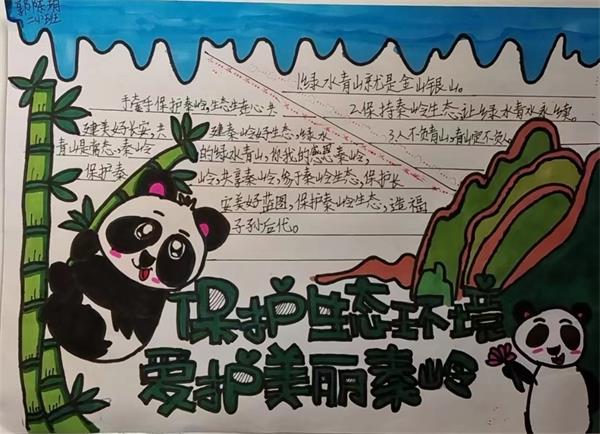 1.绿水青山就是金山银山。
2.保持秦岭生态,让绿水青水永续。
3.人不负青山,青山定不负人。
手牵手保护秦岭,生态生连心共
建美好长安,共 建秦岭好生态,绿水
青山是常态,秦岭 的绿水青山,你我的感恩秦岭,
保护秦 岭,共享秦岭,秦岭生态,保护长
安美好蓝图,保护秦岭生态,造福
子孙后代。
保护生态环境
爱护美丽秦岭